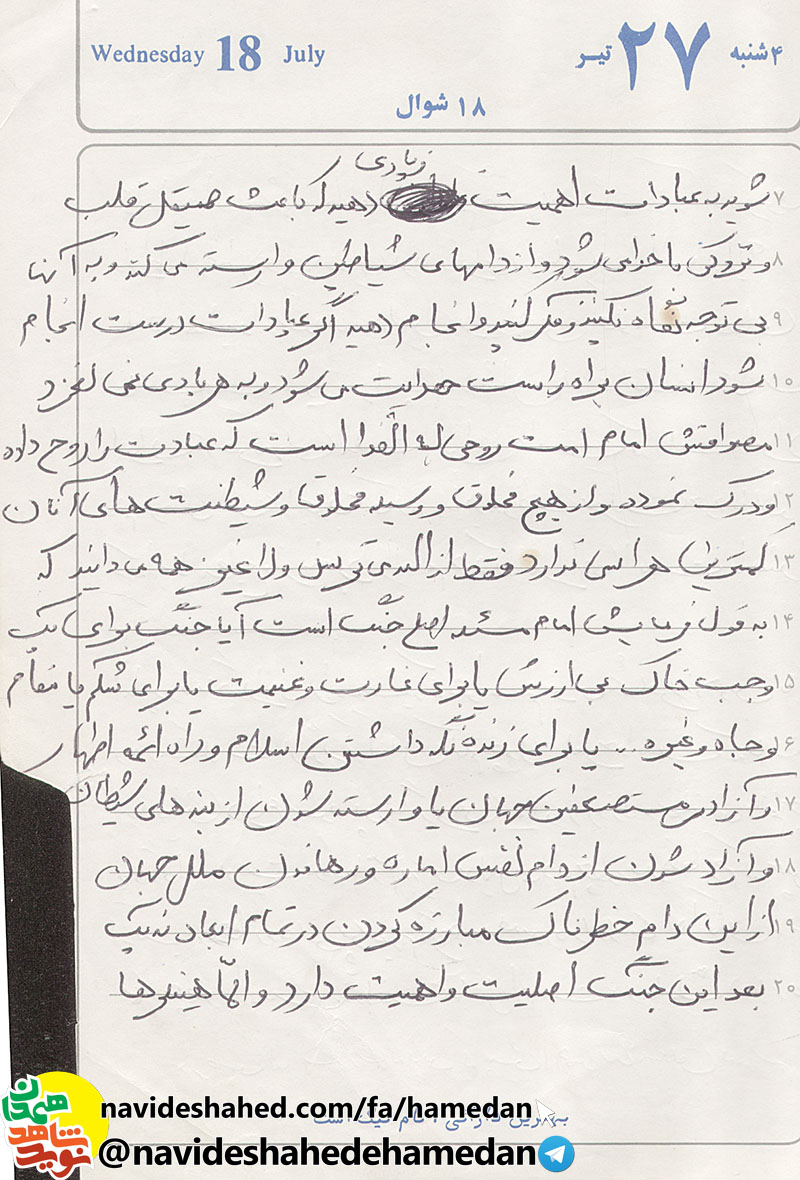 Wednesday 18 July
۴شنبه ۲۷ تیر
۱۸ شوال
زیادی
۷ شوید به عبادات اهمیت دهید که باعث صیقل قلب
۸ و نزدیکی با خدای شود و از دامهای شیاطین وارسته می کند و به آنها
۹ بی توجه نگاه نکنید و فکر کنید و انجام دهید اگر عبادات درست انجام
۱۰ شود انسان براه راست هدایت می شود و به هر بادی نمی لغزد
۱۱ مصداقش امام امت روحی له الفدا است که عبادت را روح داده
۱۲ و درک نموده و از هیچ مخلوق و وسیله مخلوق و شیطنت های آنان
۱۳ کمترین هراسی ندارد فقط از الله می ترسد ولا غیر همه می دانید که
۱۴ به قول فرمایش امام مسئله اصلی جنگ است آیا جنگ برای یک
۱۵ وجب خاک بی ارزش یا برای غارت و غنیمت یا برای شکم یا مقام
۱۶ و جاه و غیره .. یا برای زنده نگه داشتن اسلام و راه ائمه اطهار
۱۷ و آزادی مستضعفین جهان یا وارسته شدن از بندهای شیطان
۱۸ و آزاد شدن از دام نفس اماره و رهاندن ملل جهان
۱۹ از این دام خطرناک مبارزه کردن در تمام ابعاد نه یک
۲۰ بعد این جنگ اصلیت و اهمیت دارد و اما
بهترین دارائی، نام نیک است
نوید شاهد همدان
navideshahed.com/fa/hamedan
@navideshahedehamedan